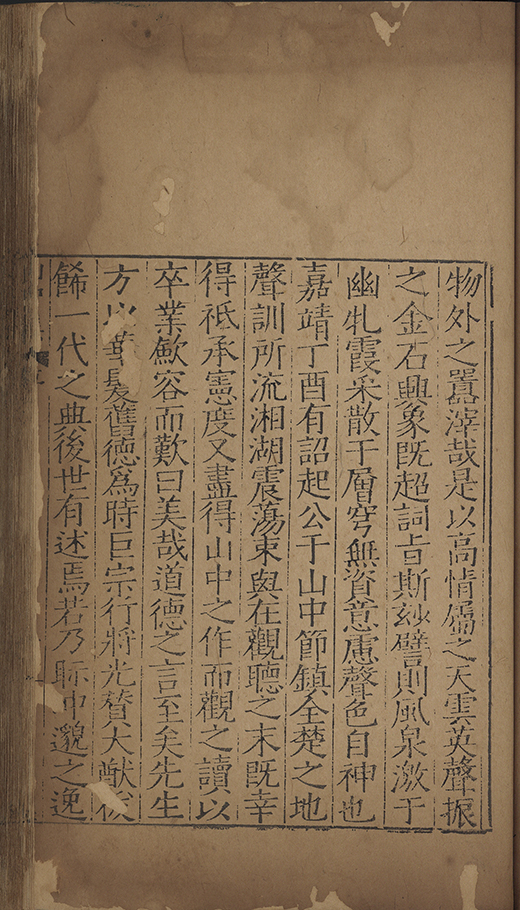 物外之囂滓哉是以高情屬之天雲英聲振
之金石興象旣超詞旨斯玅譬則風泉激于
幽牝霞采散于層穹無資意慮聲色自神也
嘉靖丁酉有詔起公于山中節鎮全楚之地
聲訓所流湘湖震蕩東與在觀聽之末旣幸
得祗承憲度又盡得山中之作而觀之讀以
卒業歛容而歎曰美哉道德之言至矣先生
方以華髮舊德爲時巨宗行將光贊大猷
餙一代之典後世有述焉若乃眎中邈之逸